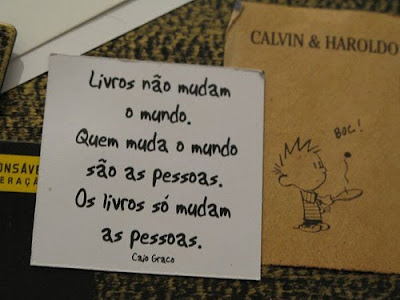 Livros não mudam
o mundo.
Quem muda o mundo
são as pessoas.
Os livros só mudam
as pessoas.
Caio Graco
CALVIN & HAROLDO
BOC!
ONSÁVE
ERAÇÃ